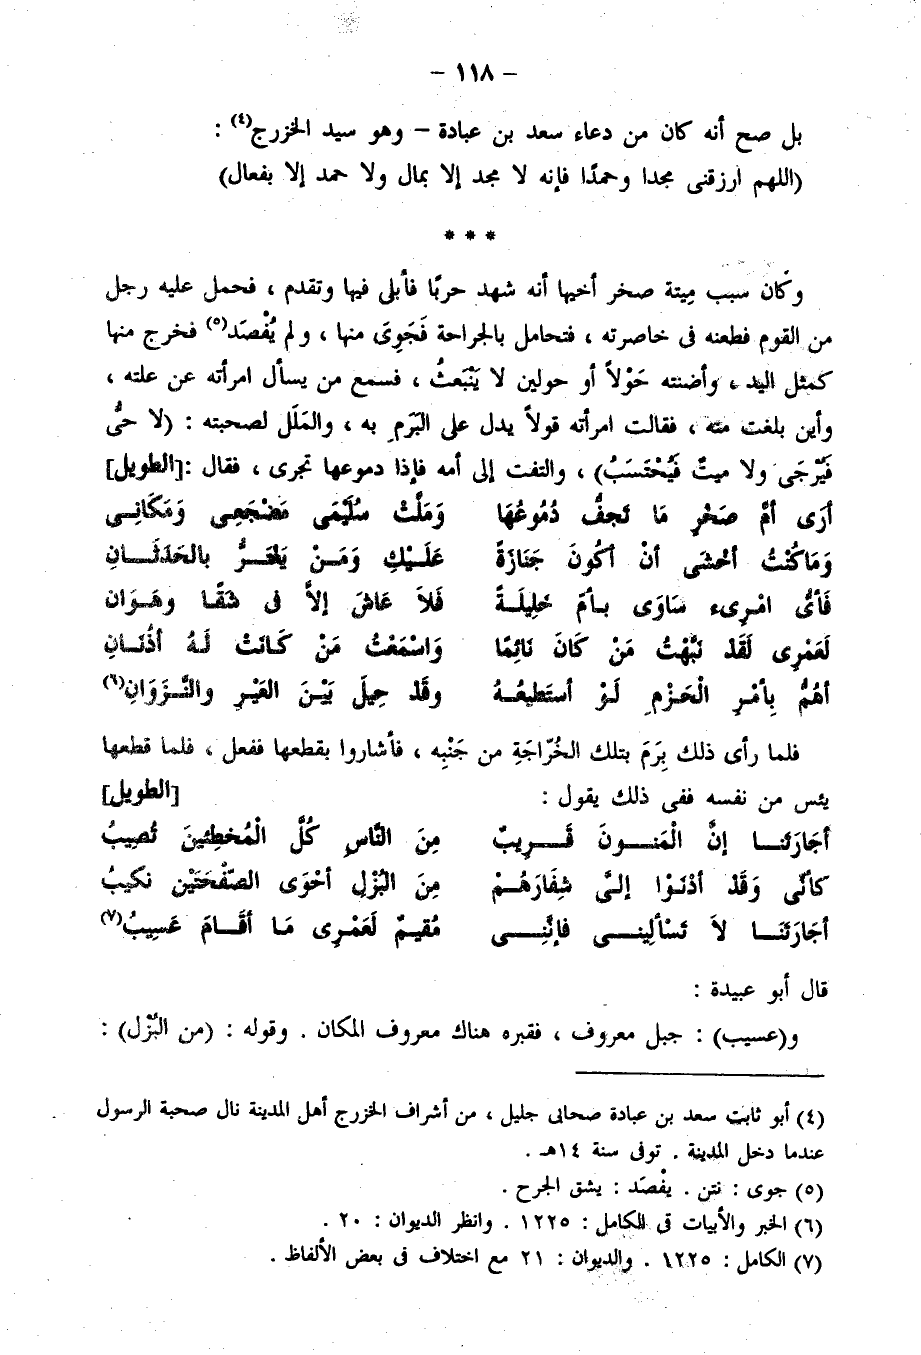 – ١١٨ –
بل صح أنه كان من دعاء سعد بن عبادة – وهو سيد الخزرج(٤) :
(اللهم ارزقنى مجدا وحمدًا فإنه لا مجد إلا بمال ولا حمد إلا بفعال)
* * *
وكان سبب مِيتة صخر أخيها أنه شهد حربًا فأبلى فيها وتقدم ، فحمل عليه رجل
من القوم فطعنه فى خاصرته ، فتحامل بالجراحة فَجَوِىَ منها ، ولم يُفْصَد(٥) فخرج منها
كمثل اليد ، وأضنته حَوْلاً أو حولين لا يَنْبَعثُ ، فسمع من يسأل امرأته عن علته ،
وأين بلغت منه ، فقالت امرأته قولاً يدل على البَرَمِ به ، والمَلَل لصحبته : (لا حىٌّ
فَيُرْجَى ولا ميتٌ فَيُحْتَسَبُ) ، والتفت إلى أمه فإذا دموعها تجرى ، فقال :[الطويل]
أرَى أمَّ صَخْرٍ مَا تَجفُّ دُمُوعُهَا وَمَلَّتْ سُلَيْمَى مَضْجَعِى وَمَكَانِـى
وَمَاكُنْتُ أخْشَى أنْ أكُونَ جَنَازَةً عَلَـيْكِ وَمَـنْ يَغْتَـرُّ بالحَدَثَـانِ
فَأىُّ امْرِىء سَاوَى بـأمّ حَلِيلَـةً فَلاَ عَاشَ إلاَّ فى شَقًـا وهَـوَان
لَعَمْرِى لَقَدْ نَبَّهْتُ مَنْ كَانَ نَائِمًا وَاسْمَعْتُ مَنْ كَـانَتْ لَـهُ أذُنَـانِ
أهُمُّ بِأمْـرِ الْحَـزْمِ لَـوْ أستَطيعُـهُ وقَدْ حِيلَ بَيْـنَ العَيْـرِ والنَّـزَوَانِ(٦)
فلما رأى ذلك بَرَمَ بتلك الخُرّاجَةِ من جَنْبِه ، فأشاروا بقطعها ففعل ، فلما قطعها
يئس من نفسه ففى ذلك يقول : [الطويل]
أجَارَتَنـا إنَّ الْمَنـونَ قَـرِيبٌ مِنَ النَّاسِ كُلَّ الْمُخطِئينَ تُصِيبُ
كأنّى وَقَدْ أدْنَوْا إلىَّ شِفَارَهُـمْ مِنَ البُزْلِ أحْوَى الصّفْحَتَيْن نكيبُ
أجَارَتَنَـا لاَ تَسْألِينـى فإنَّنِـى مُقيـمٌ لَعَمْرِى مَـا أقَـامَ عَسِيبُ(٧)
قال أبو عبيدة :
و(عسيب) : جبل معروف ، فقبره هناك معروف المكان . وقوله : (من البُزْل) :
(٤) أبو ثابت سعد بن عبادة صحابى جليل ، من أشراف الخزرج أهل المدينة نال صحبة الرسول
عندما دخل المدينة . توفى سنة ١٤هـ .
(٥) جوى : نتن . يفْصَد : يشق الجرح .
(٦) الخبر والأبيات فى الكامل : ١٢٢٥ . وانظر الديوان : ٢٠ .
(٧) الكامل : ١٢٢٥ . والديوان : ٢١ مع اختلاف فى بعض الألفاظ .